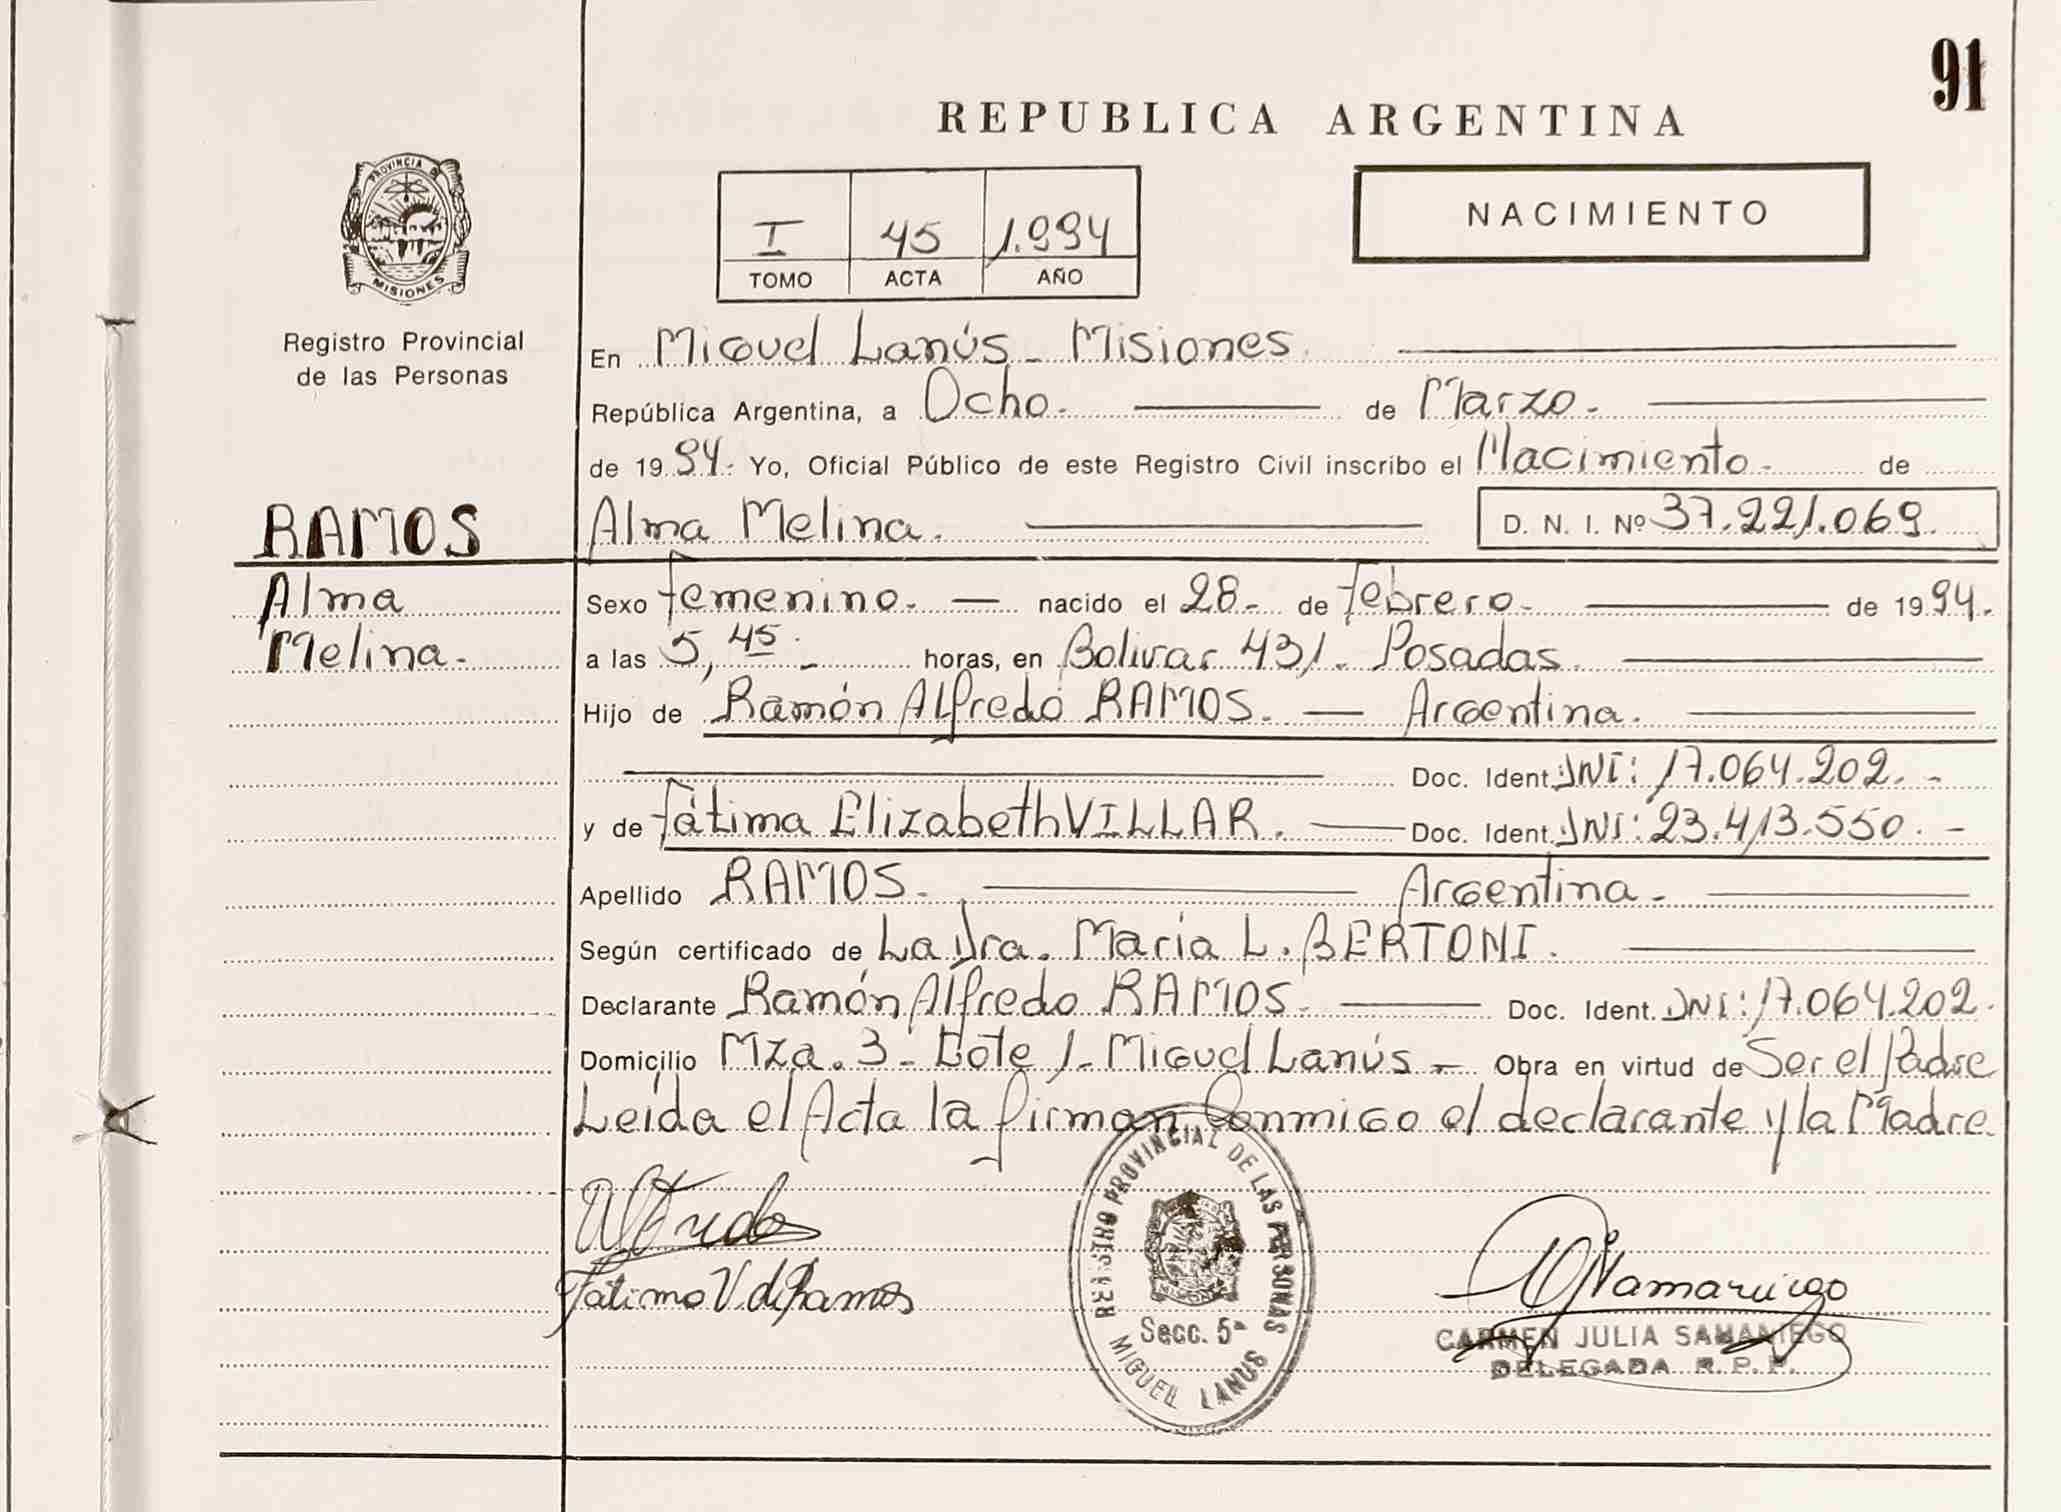 91
REPUBLICA ARGENTINA
PROVINCIA DE
MISIONES
Registro Provincial
de las Personas
I 45 1.994
TOMO ACTA AÑO
NACIMIENTO
En Miguel Lanús - Misiones.
República Argentina, a Ocho. de Marzo.
de 1994. Yo, Oficial Público de este Registro Civil inscribo el Nacimiento. de
RAMOS Alma Melina. D. N. I. Nº 37.221.069.
Alma Sexo femenino. nacido el 28. de febrero. de 1994.
Melina. a las 5,45. horas, en Bolivar 431. Posadas.
Hijo de Ramón Alfredo RAMOS. Argentina.
Doc. Ident. DNI: 17.064.202.-
y de Fátima Elizabeth VILLAR. Doc. Ident. DNI: 23.413.550.-
Apellido RAMOS. Argentina.
Según certificado de La Dra. María L. BERTONI.
Declarante Ramón Alfredo RAMOS. Doc. Ident. DNI: 17.064.202.
Domicilio Mza. 3 - Lote 1. Miguel Lanús - Obra en virtud de Ser el Padre
Leída el Acta la firman Conmigo el declarante y la Madre.
Alfredo
Fátima V. de Ramos
REGISTRO PROVINCIAL DE LAS PERSONAS
Secc. 5ª
MIGUEL LANUS
CARMEN JULIA SAMANIEGO
DELEGADA R.P.P.